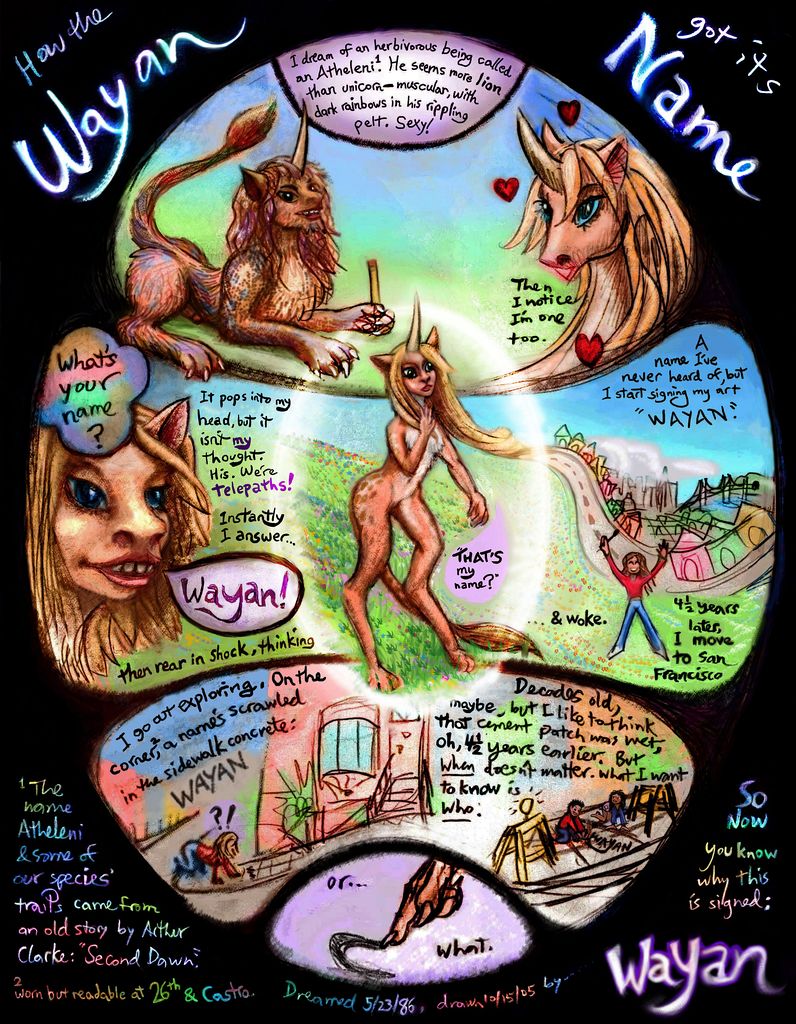 How the
Wayan
got its
Name
I dream of an herbivorous being called
an Atheleni.¹ He seems more lion
than unicorn—muscular, with
dark rainbows in his rippling
pelt. Sexy!
Then
I notice
I'm one
too.
What's
your
name
?
It pops into my
head, but it
isn't my
thought.
His. We're
telepaths!
Instantly
I answer...
Wayan!
then rear in shock, thinking
"THAT'S
my
name?"
... & woke.
A
name I've
never heard of, but
I start signing my art
"WAYAN".
4½ years
later,
I move
to San
Francisco
I go out exploring. On the
corner,² a name's scrawled
in the sidewalk concrete:
WAYAN
?!
Decades old,
maybe, but I like to think
that cement patch was wet,
oh, 4½ years earlier. But
when doesn't matter. What I want
to know is
who.
WAYAN
or...
what.
¹ The
name
Atheleni
& some of
our species'
traits came from
an old story by Arther
Clarke: "Second Dawn".
² worn but readable at 26th & Castro.
Dreamed 5/23/86, drawn 10/15/05 by...
So
Now
you know
why this
is signed:
Wayan